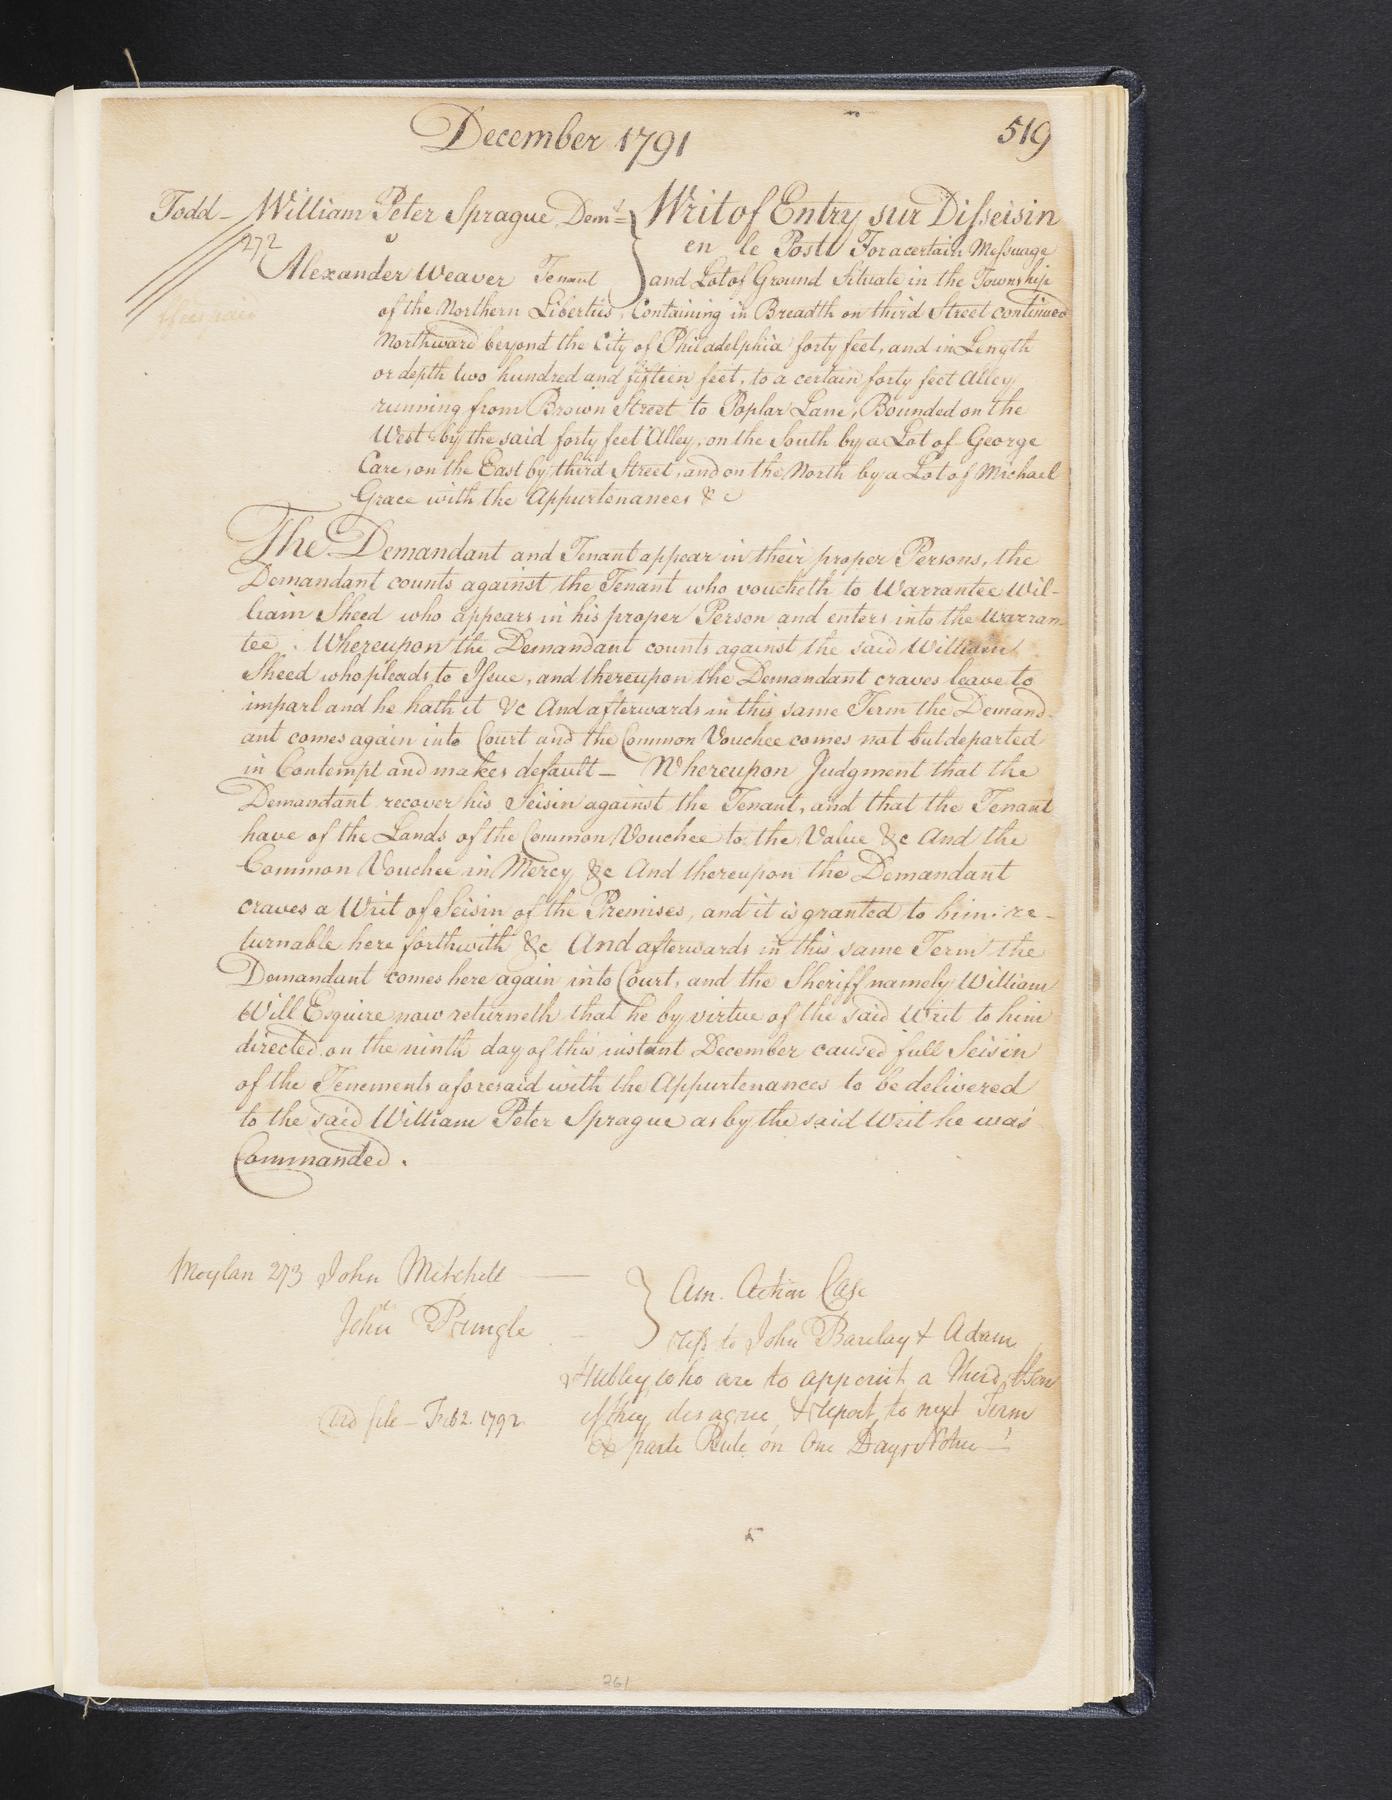 December 1791
519
Todd - William Peter Sprague Demt
Writ of Entry sur Disseisin
272
v
en le Post For a certain Messuage
Alexander Weaver Tenant
and Lot of Ground Situate in the Township
of the Northern Liberties, Containing in Breadth on third Street continued
Northward beyond the City of Philadelphia forty feet, and in Length
or depth two hundred and fifteen feet, to a certain forty feet Alley
running from Brown Street to Poplar Lane, Bounded on the
West by the said forty feet Alley, on the South by a Lot of George
Care, on the East by third Street, and on the North by a Lot of Michael
Grace with the Appurtenances &c
The Demandant and Tenant appear in their proper Persons, the
Demandant counts against the Tenant who voucheth to Warrantee Wil-
liam Sheed who appears in his proper Person and enters into the Warran-
tee. Whereupon the Demandant counts against the said William
Sheed who pleads to Issue, and thereupon the Demandant craves leave to
imparl and he hath it &c And afterwards in this same Term the Demand-
ant comes again into Court and the Common Vouchee comes not but departed
in Contempt and makes default - Whereupon Judgment that the
Demandant recover his Seisin against the Tenant, and that the Tenant
have of the Lands of the Common Vouchee to the Value &c And the
Common Vouchee in Mercy &c And thereupon the Demandant
craves a Writ of Seisin of the Premises, and it is granted to him re-
turnable here forthwith &c And afterwards in this same Term the
Demandant comes here again into Court, and the Sheriff namely William
Will Esquire now returneth that he by virtue of the said Writ to him
directed on the ninth day of this instant December caused full Seisin
of the Tenements aforesaid with the Appurtenances to be delivered
to the said William Peter Sprague as by the said Writ he was
Commanded.
Moylan 273 John Mitchell
Am. Action Case
John Pringle
refd to John Barclay & Adam
Hubley who are to appoint a Third Person
if they disagree & report to next Term
file - Feb 2. 1792
Ex parte Rule on One Days Notice
261